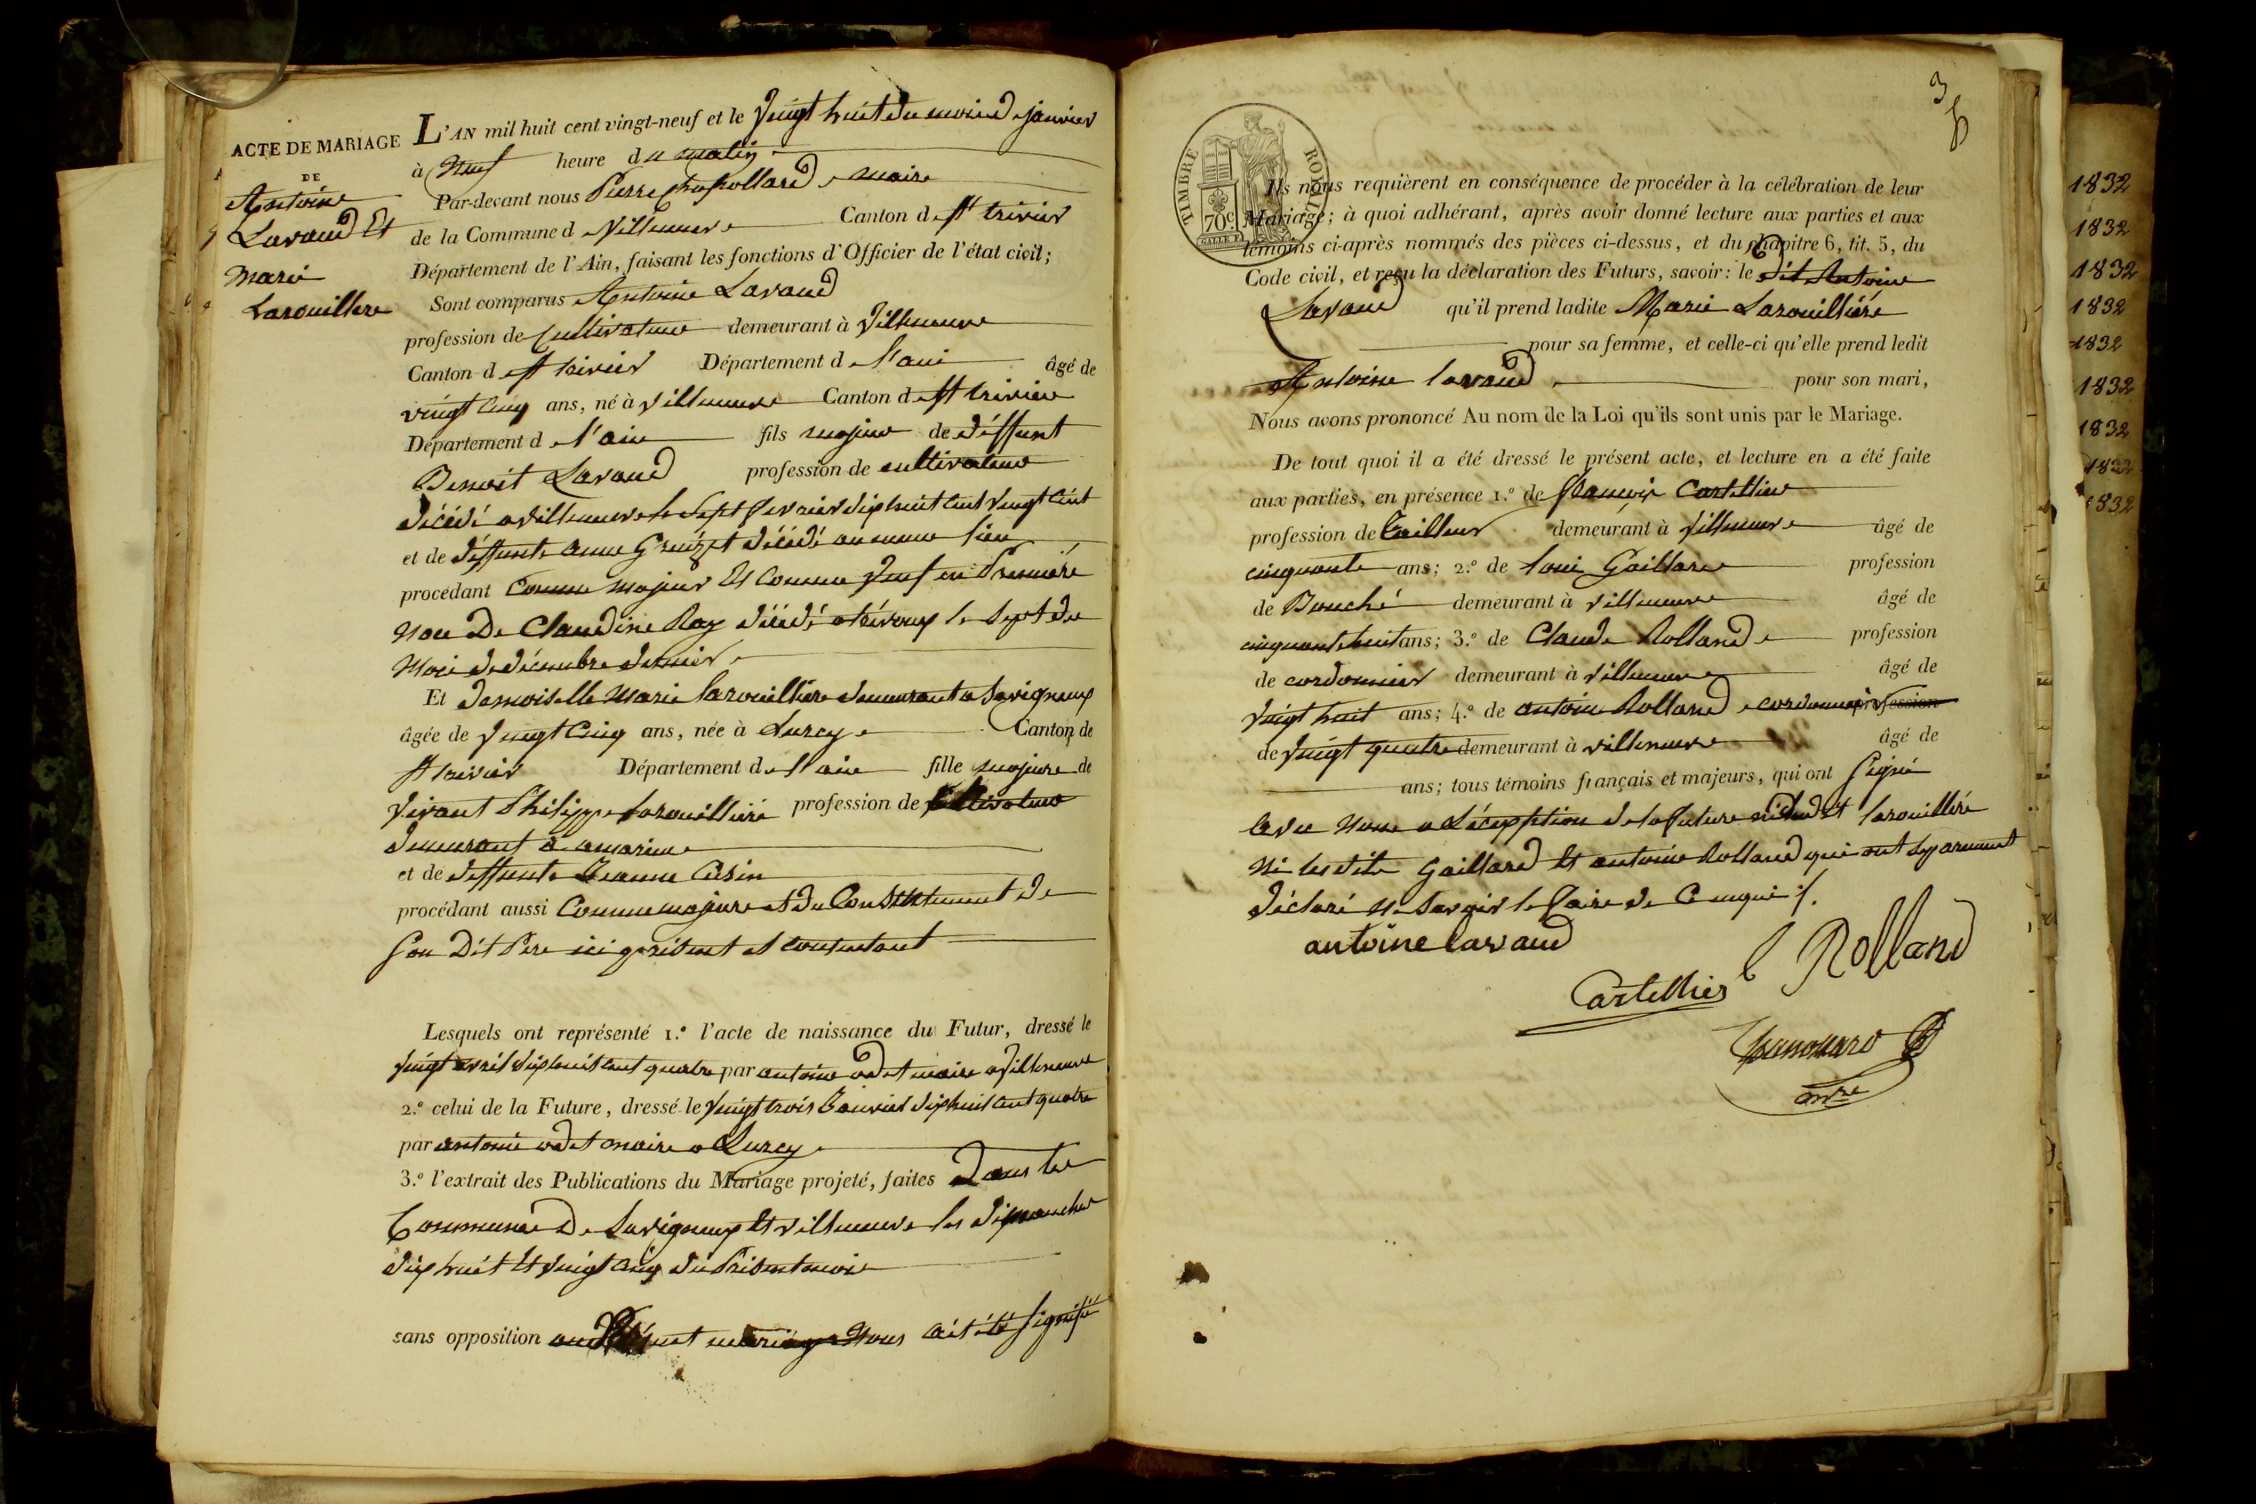 ACTE DE MARIAGE
DE
Antoine
Lavaud Et
Marie
Larouillere
L'AN mil huit cent vingt-neuf et le Vingt huit du mois de janvier
à Neuf heure du matin
Par-devant nous Pierre maire
de la Commune de Villeneuve Canton de St trivier
Département de l'Ain, faisant les fonctions d'Officier de l'état civil;
Sont comparus Antoine Lavaud
profession de Cultivateur demeurant à Villeneuve
Canton de St trivier Département de l'ain âgé de
vingt cinq ans, né à Villeneuve Canton de St trivier
Département de l'ain fils majeur de déffunt
Benoit Lavaud profession de cultivateur
décédé a villeneuve le Sept fevrier dix huit cent vingt cinq
et de déffunte anne décédé au meme lieu
procédant Comme majeur Et Comme Veuf en Premiére
Noce De Claudine Ray décédé a trévoux le Sept du
Mois de décembre dernier
Et Demoiselle Marie larouilliere demeurant a Savigneux
âgée de Vingt Cinq ans, née à Lurcy Canton de
St trivier Département de l'ain fille majeure de
Vivant Philippe larouilliére profession de Cultivateur
demeurant a amarieux
et de deffunte Jeanne Cusin
procédant aussi Comme majeure et du Consentement de
Son Dit Pere ici présent et consentant
Lesquels ont représenté 1.º l'acte de naissance du Futur, dressé le
vingt avril dix huit cent quatre par antoine odet maire a Villeneuve
2.º celui de la Future, dressé le Vingt trois Janvier dix huit cent quatre
par antoine odet maire a Lurcy
3.º l'extrait des Publications du Mariage projeté, faites Dans les
Commune De Savigneux Et villeneuve les dimanches
dix huit Et Vingt cinq du Présent mois
sans opposition audit mariage Nous ait été Signifié
3
TIMBRE ROYAL
70c
Ils nous requièrent en conséquence de procéder à la célébration de leur
Mariage; à quoi adhérant, après avoir donné lecture aux parties et aux
témoins ci-après nommés des pièces ci-dessus, et du chapitre 6, tit. 5, du
Code civil, et reçu la déclaration des Futurs, savoir: le dit Antoine
Lavaud qu'il prend ladite Marie Larouilliére
pour sa femme, et celle-ci qu'elle prend ledit
Antoine lavaud pour son mari,
Nous avons prononcé Au nom de la Loi qu'ils sont unis par le Mariage.
De tout quoi il a été dressé le présent acte, et lecture en a été faite
aux parties, en présence 1.º de françois Cartellier
profession de tailleur demeurant à Villeneuve âgé de
cinquante ans; 2.º de loui Gaillard profession
de Bouché demeurant à Villeneuve âgé de
cinquante huit ans; 3.º de Claude Rolland profession
de cordonnier demeurant à Villeneuve âgé de
vingt huit ans; 4.º de antoine Rolland cordonnier profession
de Vingt quatre demeurant à villeneuve âgé de
ans; tous témoins français et majeurs, qui ont Signé
avec Nous a L'éxception de la future ni ledit larouillére
Ni les dits Gaillard Et antoine Rolland qui ont Séparement
déclaré Ne Savoir le faire de Ce enquis
antoine lavaud
C Rolland
Cartellier
mre
1832
1832
1832
1832
1832
1832
1832
1832
1832